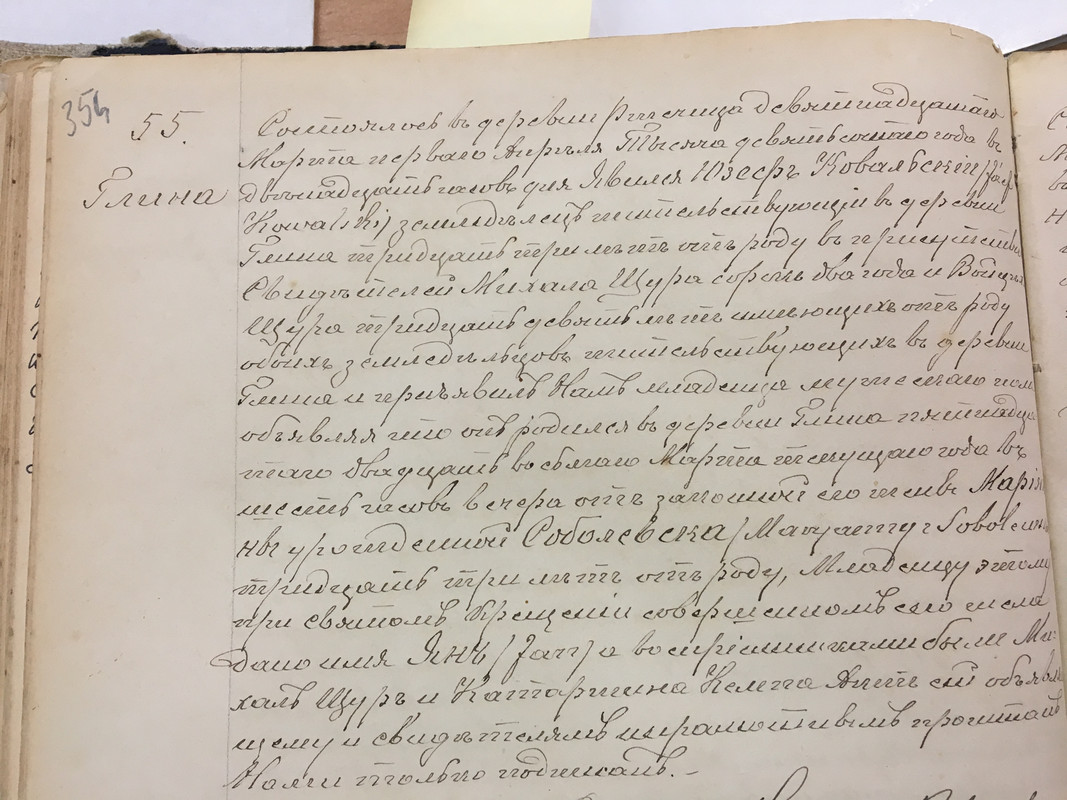 354
55.
Глина
Состоялось въ деревни Ржечица девятнадцатаго
Марта перваго Апрѣля Тысяча девятьсотаго года въ
двѣнадцать часовъ дня Явился Юзефъ Ковальскій /Józef
Kowalski/ земледѣлецъ жительствующій въ деревни
Глина тридцать три лѣтъ отъ роду въ присутствіи
Свидѣтелей Михала Щура сорокъ два года и Войцеха
Щура тридцать девять лѣтъ имѣющихъ отъ роду
обоихъ земледѣльцовъ жительствующихъ въ деревни
Глина и предъявилъ Намъ младенца мужескаго пола
объявляя что онъ родился въ деревни Глина пятнадца
таго двадцать восьмаго Марта текущаго года въ
шесть часовъ вечера отъ законной его жены Маріян
ны урожденной Соболевска /Maryanny z
тридцать три лѣтъ отъ роду, Младенцу этому
при Святомъ Крещеніи совершенномъ сего числа
дано имя Янъ /Jan/ а воспріемниками были Ми-
халъ Щуръ и Катаржина Актъ сей объявля
щему и свидѣтелямъ неграмотнымъ прочтанъ
Нами только подписанъ. –